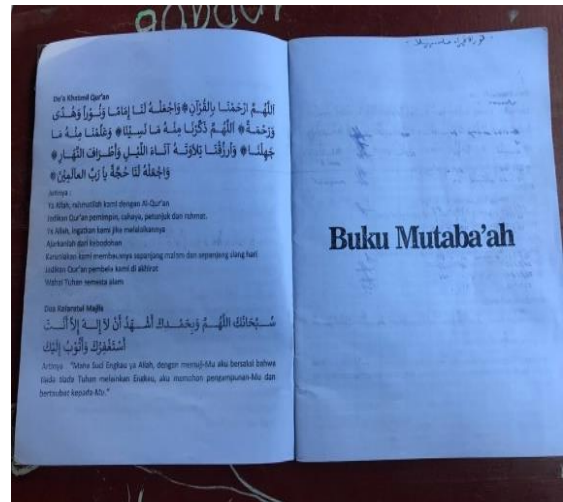 Do'a Khatmil Qur'an
اَللّٰهُمَّ ارْحَمْنَا بِالْقُرْآنِ۞وَاجْعَلْهُ لَنَا إِمَامًا وَنُوْرًا وَهُدًى
وَرَحْمَةً۞ اَللّٰهُمَّ ذَكِّرْنَا مِنْهُ مَا نَسِيْنَا۞ وَعَلِّمْنَا مِنْهُ مَا
جَهِلْنَا۞ وَارْزُقْنَا تِلَاوَتَهُ آنَاءَ اللَّيْلِ وَأَطْرَافَ النَّهَارِ۞
وَاجْعَلْهُ لَنَا حُجَّةً يَا رَبَّ الْعَالَمِيْنَ۞
Artinya :
Ya Allah, rahmatilah kami dengan Al-Qur'an
Jadikan Qur'an pemimpin, cahaya, petunjuk dan rahmat.
Ya Allah, ingatkan kami jika melalaikannya
Ajarkanlah dari kebodohan
Karuniakan kami membacanya sepanjang malam dan sepanjang siang hari
Jadikan Qur'an pembela kami di akhirat
Wahai Tuhan semesta alam
Doa Kafaratul Majlis
سُـبْحَانَكَ اللّٰهُـمَّ وَبِحَمْـدِكَ أَشْـهَدُ أَنْ لَا إِلٰـهَ إِلَّا أَنْـتَ
أَسْتَغْفِرُكَ وَأَتُوْبُ إِلَيْكَ
Artinya : "Maha Suci Engkau ya Allah, dengan memuji-Mu aku bersaksi bahwa
tiada Tuhan melainkan Engkau, aku memohon pengampunan-Mu dan
bertaubat kepada-Mu."
Buku Mutaba'ah